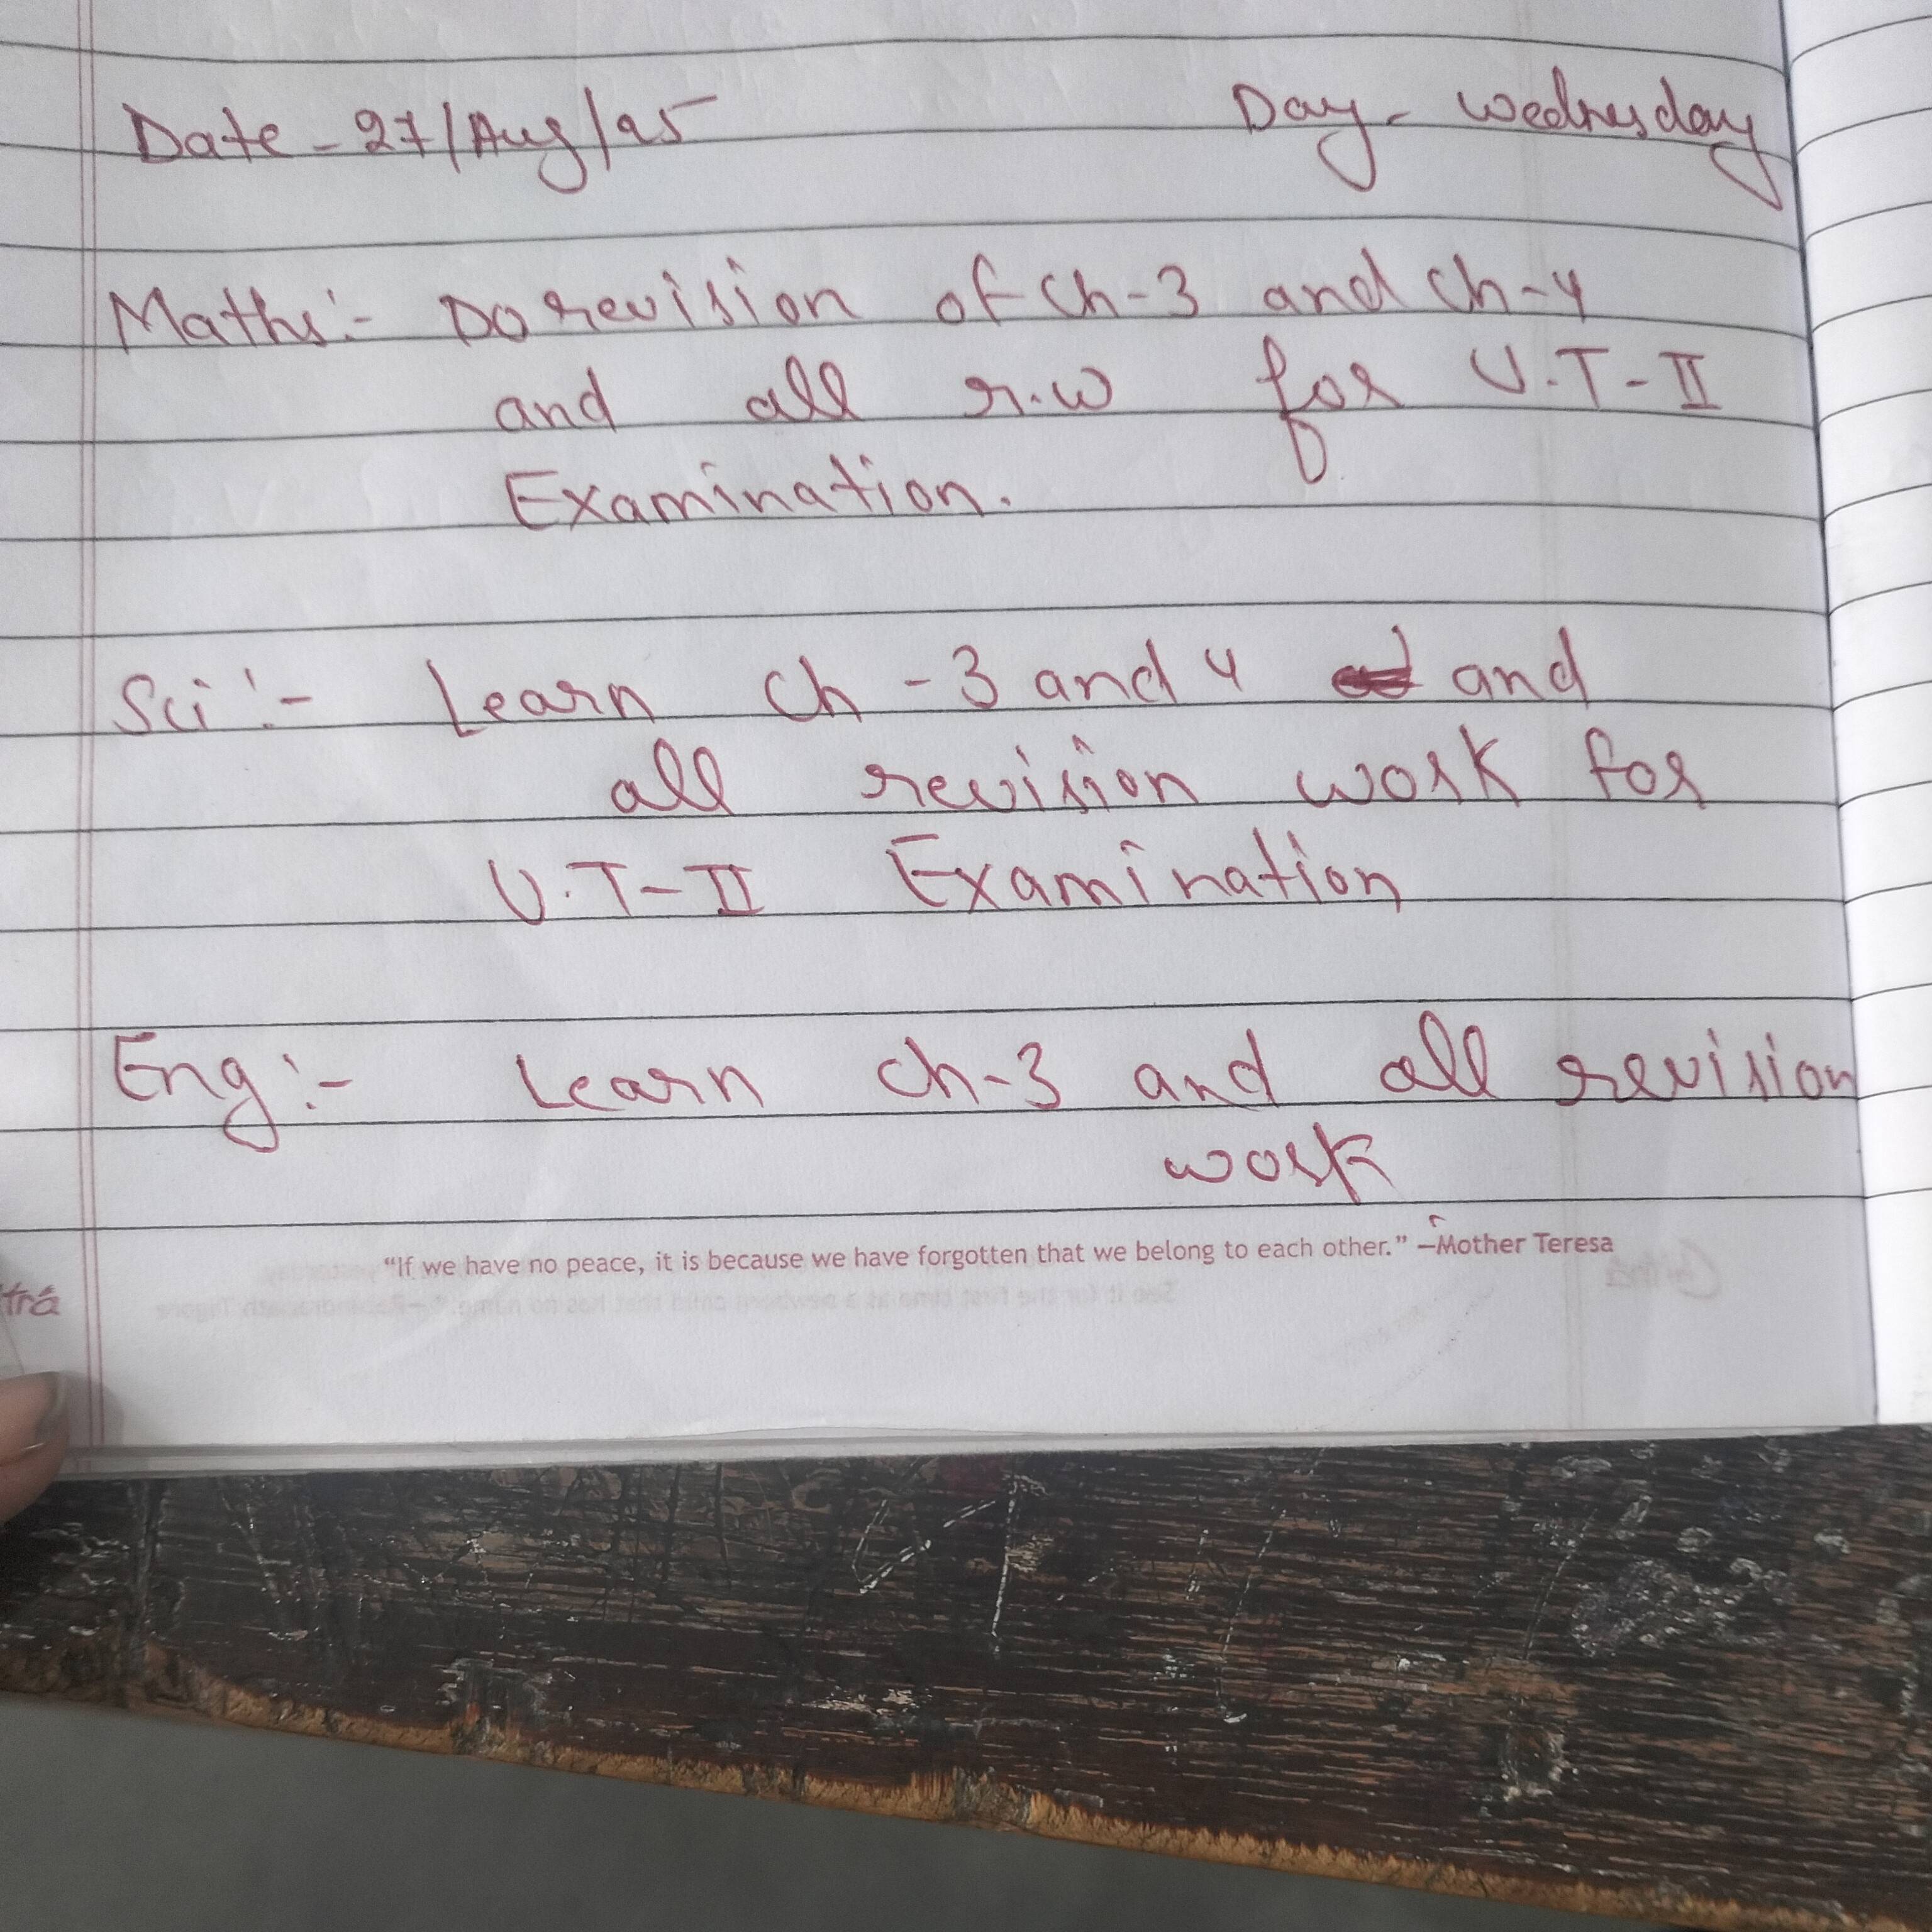 Date - 27/Aug/25 Day - Wednesday
Maths :- Do revision of Ch-3 and Ch-4
and all r.w for U.T-II
Examination.
Sci :- Learn Ch-3 and 4 and
all revision work for
U.T-II Examination
Eng :- Learn ch-3 and all revision
work
"If we have no peace, it is because we have forgotten that we belong to each other." —Mother Teresa